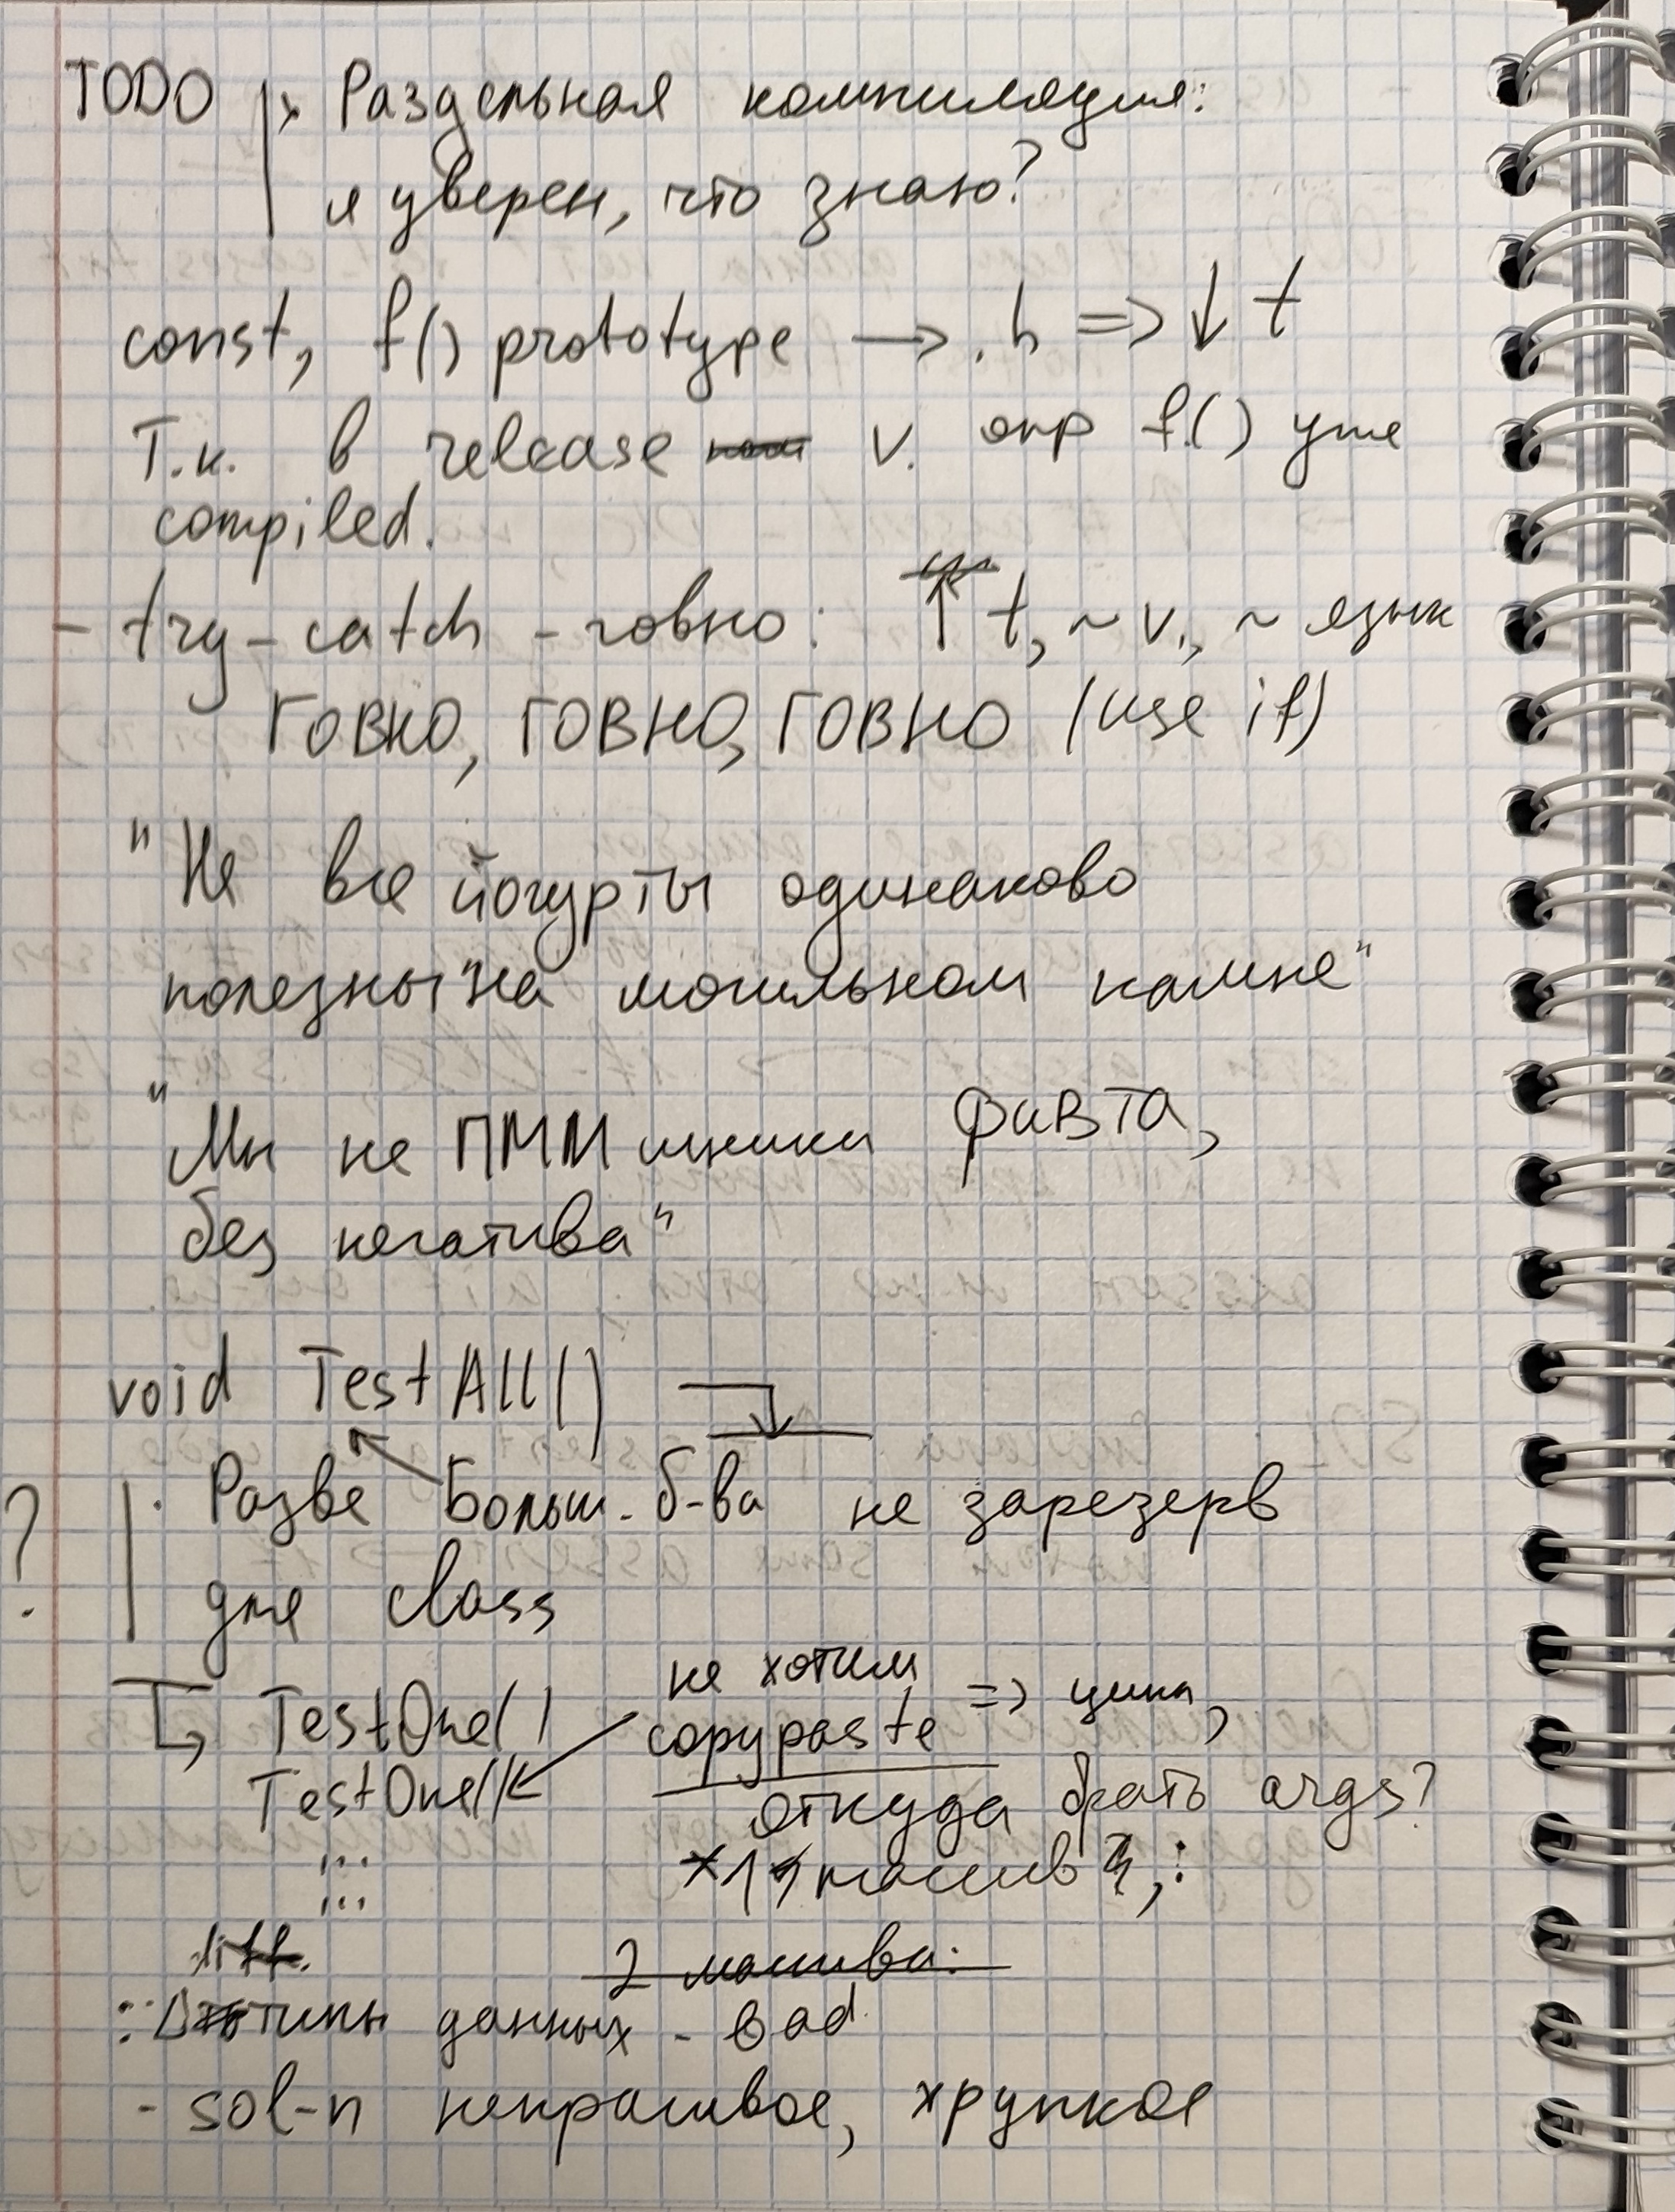 TODO Раздельная компиляция:
я уверен, что знаю?
const, f() prototype → .h => ↓ t
Т.к. в release v. опр f.() уже
compiled.
- try-catch - говно: ↑ t, ~ v., ~ язык
ГОВНО, ГОВНО, ГОВНО (use if)
"Не все йогурты одинаково
полезны" на могильном камне"
"Мы не ПММщики ФИВТА,
без негатива"
void TestAll()
? Разве Больш. б-ва не зарезерв
для class
не хотим
TestOne() copypaste => цикл,
TestOne() откуда брать args?
*1 массив
2 массива:
diff.
типы данных - bad.
- sol-n некрасивое, хрупкое